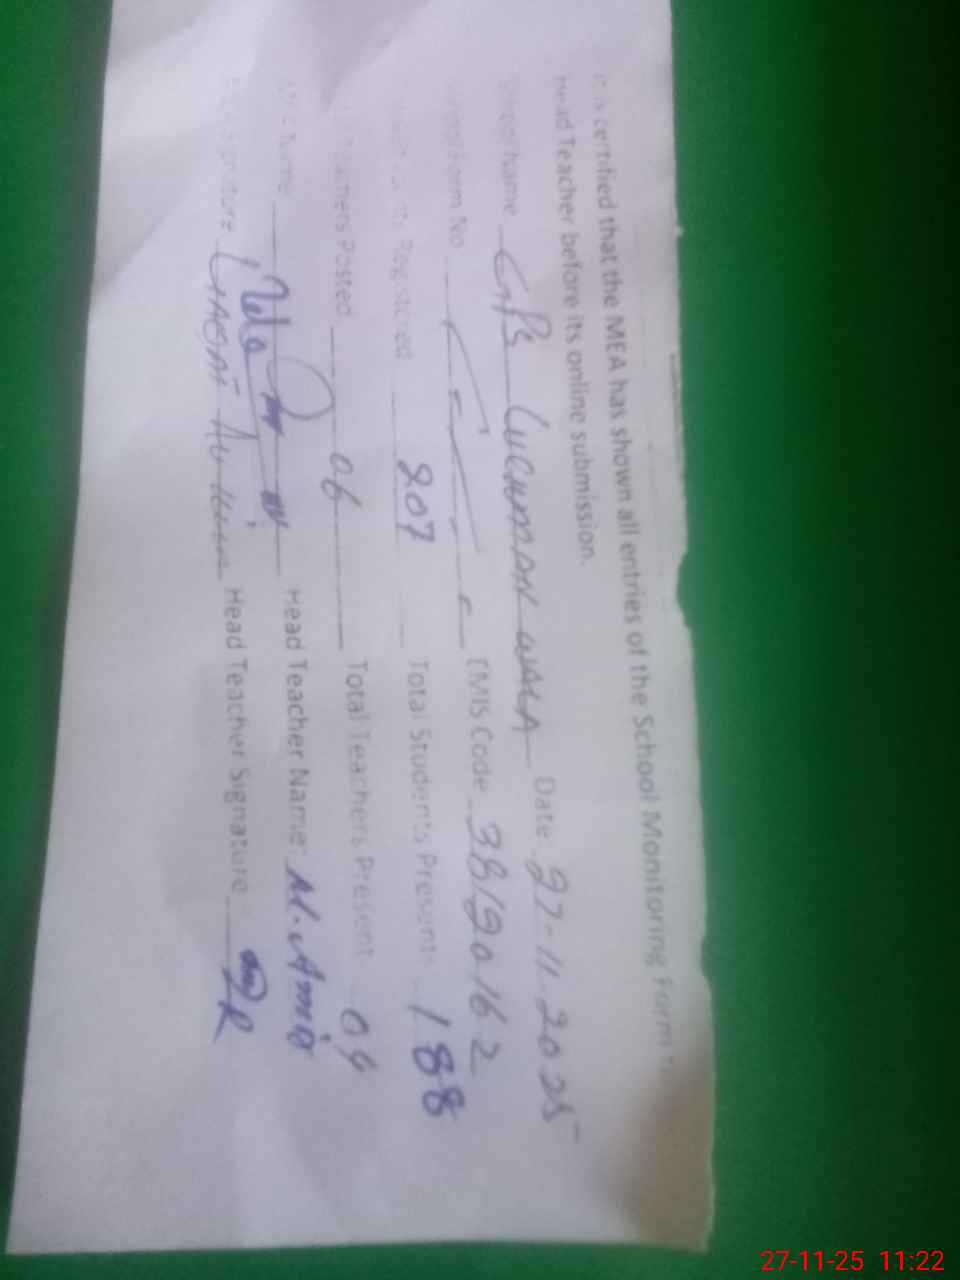 It is certified that the MEA has shown all entries of the School Monitoring Form
Head Teacher before its online submission.
School Name GPS LUCHMAN WALA Date 27-11-2025
Form No EMIS Code 38120162
Registered 207 Total Students Present 188
Teachers Posted 06 Total Teachers Present 04
Name Head Teacher Name: M. Amin
Signature Head Teacher Signature
27-11-25 11:22